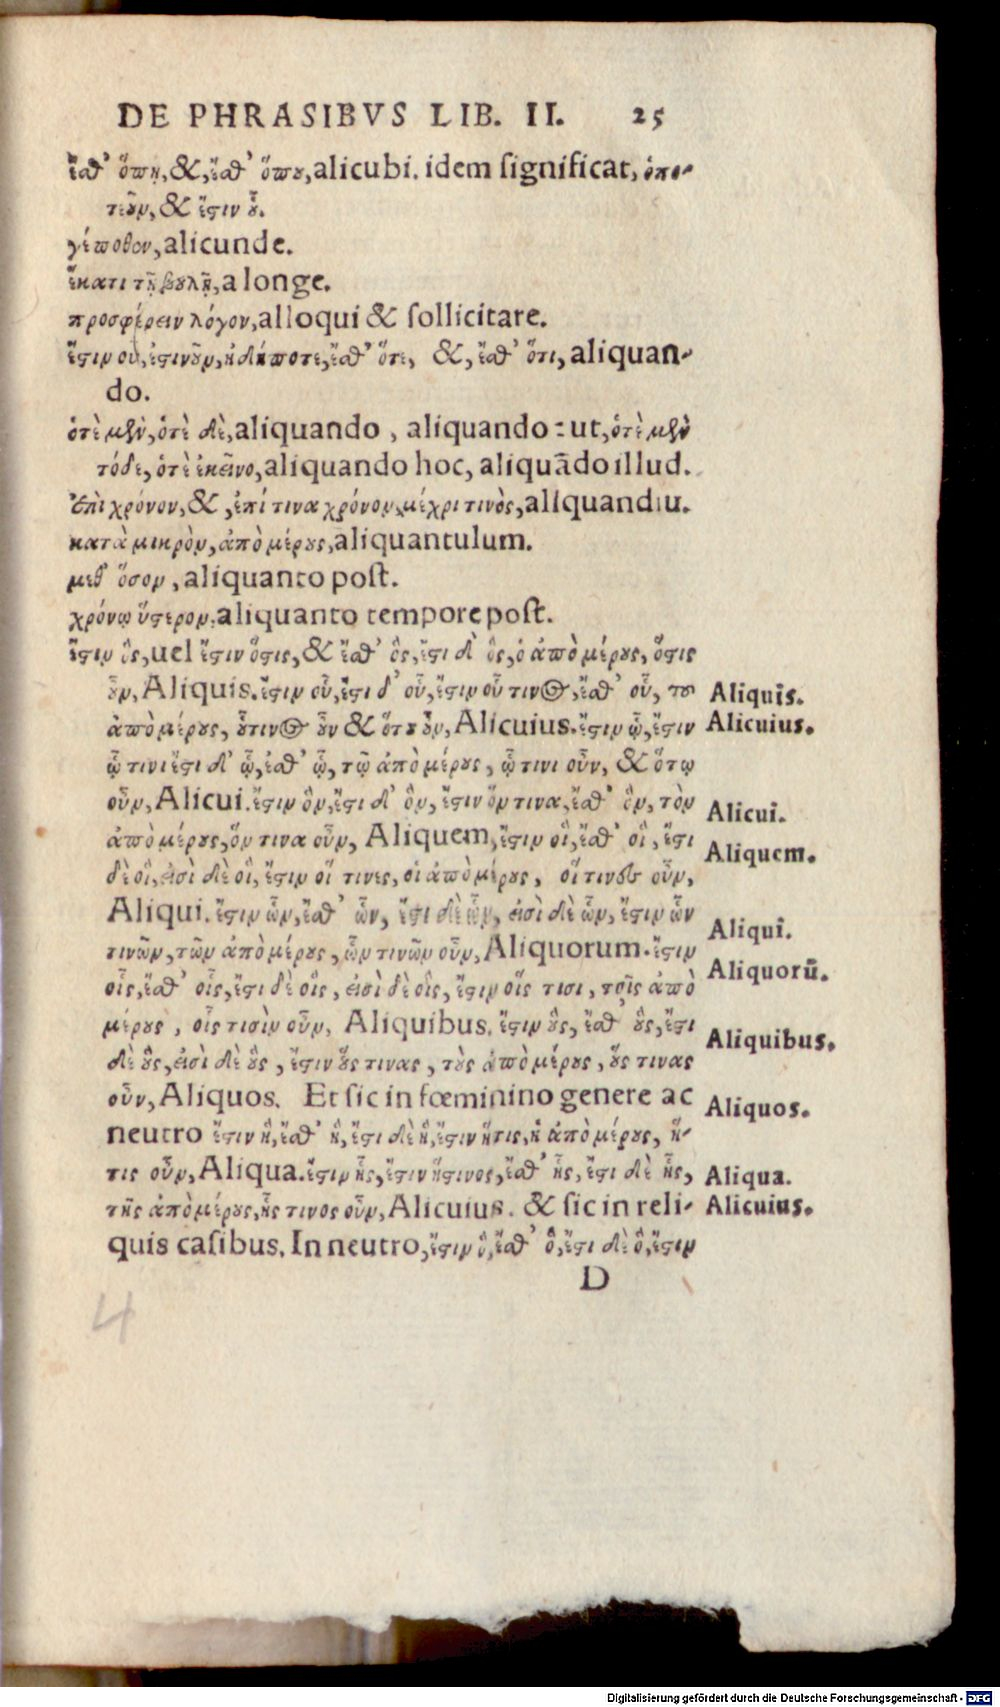 DE PHRASIBVS LIB. II. 25
ἔσθ' ὅπη, &, ἔσθ' ὅπου, alicubi. idem significat, ὁπο-
τεοῦν, & ἔστιν οὗ.
γέποθον, alicunde.
ἕκατι τῇ βουλῇ, a longe.
προσφέρειν λόγον, alloqui & sollicitare.
ἔστιν οὗ, ἐστινοῦν, ἢ δήποτε, ἔσθ' ὅτε, &, ἔσθ' ὅτι, aliquan-
do.
ὁτὲ μὲν, ὁτὲ δὲ, aliquando, aliquando: ut, ὁτὲ μὲν
τόδε, ὁτὲ ἐκεῖνο, aliquando hoc, aliquādo illud.
ἐπὶ χρόνον, &, ἐπί τινα χρόνον, μέχρι τινὸς, aliquandiu.
κατὰ μικρὸν, ἀπὸ μέρους, aliquantulum.
μεθ' ὅσον, aliquanto post.
χρόνῳ ὕστερον, aliquanto tempore post.
ἔστιν ὃς, uel ἔστιν ὅστις, & ἔσθ' ὃς, ἔστι δ' ὃς, ὁ ἀπὸ μέρους, ὅστις
οὖν, Aliquis. ἔστιν οὗ, ἔστι δ' οὗ, ἔστιν οὗ τινος, ἔσθ' οὗ, του
ἀπὸ μέρους, οὗτινος οὖν & ὅτου οὖν, Alicuius. ἔστιν ᾧ, ἔστιν
ᾧ τινι ἔστι δ' ᾧ, ἔσθ' ᾧ, τῷ ἀπὸ μέρους, ᾧ τινι οὖν, & ὅτῳ
οὖν, Alicui. ἔστιν ὃν, ἔστι δ' ὃν, ἔστιν ὅν τινα, ἔσθ' ὃν, τὸν
ἀπὸ μέρους, ὅν τινα οὖν, Aliquem, ἔστιν οἳ, ἔσθ' οἳ, ἔστι
δὲ οἳ, εἰσὶ δὲ οἳ, ἔστιν οἵ τινες, οἱ ἀπὸ μέρους, οἵ τινες οὖν,
Aliqui. ἔστιν ὧν, ἔσθ' ὧν, ἔστι δὲ ὧν, εἰσὶ δὲ ὧν, ἔστιν ὧν
τινῶν, τῶν ἀπὸ μέρους, ὧν τινῶν οὖν, Aliquorum. ἔστιν
οἷς, ἔσθ' οἷς, ἔστι δὲ οἷς, εἰσὶ δὲ οἷς, ἔστιν οἷς τισι, τοῖς ἀπὸ
μέρους, οἷς τισὶν οὖν, Aliquibus. ἔστιν οὓς, ἔσθ' οὓς, ἔστι
δὲ οὓς, εἰσὶ δὲ οὓς, ἔστιν οὕς τινας, τοὺς ἀπὸ μέρους, οὕς τινας
οὖν, Aliquos. Et sic in fœminino genere ac
neutro ἔστιν ἣ, ἔσθ' ἣ, ἔστι δὲ ἣ, ἔστιν ἥτις, ἡ ἀπὸ μέρους, ἥ-
τις οὖν, Aliqua. ἔστιν ἧς, ἔστιν ἧστινος, ἔσθ' ἧς, ἔστι δὲ ἧς,
τῆς ἀπὸ μέρους, ἧς τινος οὖν, Alicuius. & sic in reli-
quis casibus. In neutro, ἔστιν ὃ, ἔσθ' ὃ, ἔστι δὲ ὃ, ἔστιν
D
Aliquis.
Alicuius.
Alicui.
Aliquem.
Aliqui.
Aliquorū.
Aliquibus.
Aliquos.
Aliqua.
Alicuius.
4
Digitalisierung gefördert durch die Deutsche Forschungsgemeinschaft - DFG